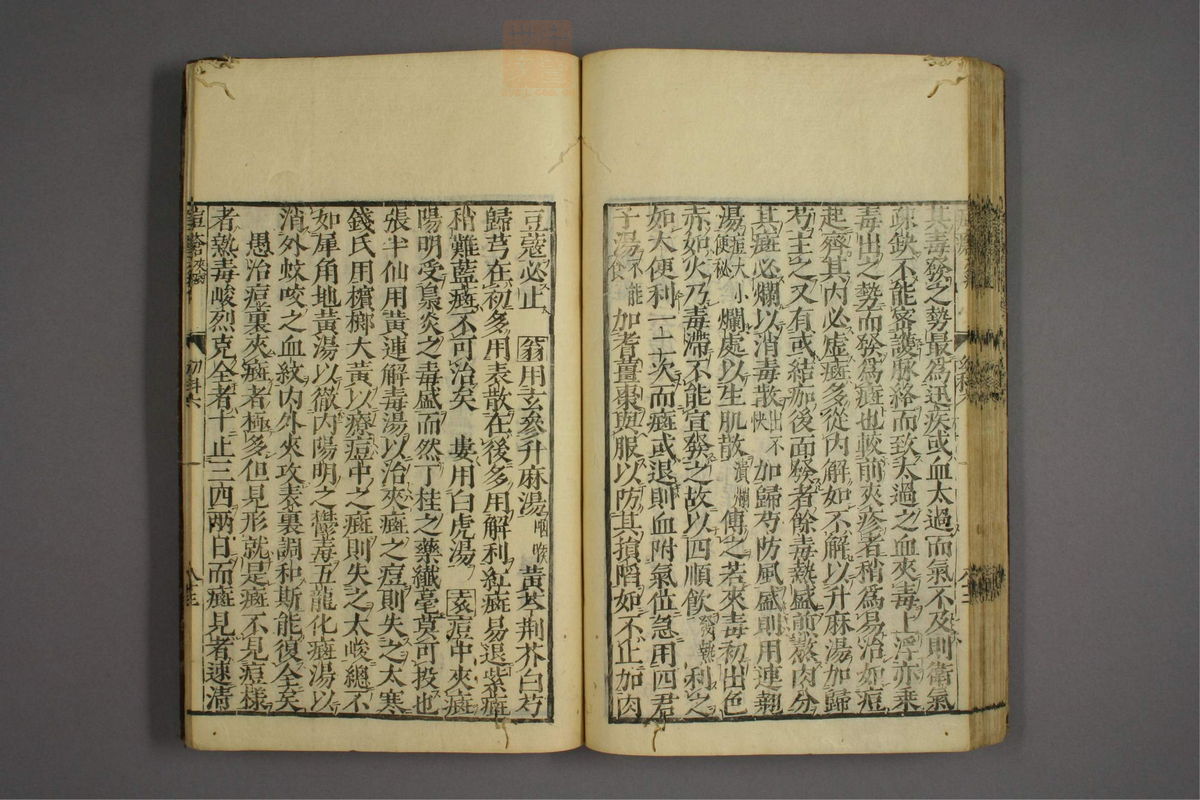 其毒發之勢最為迅疾或血太過而氣不及則衛氣
疎缺不能密護脉絡而致太過之血夾毒上浮亦乗
毒出之勢而發為癍也較前夾疹者稍為易治如痘
起齊其内必虚癍多從内解如不解以升麻湯加歸
芍主之又有或結痂後面發者餘毒熱盛煎熬肉分
其癍必爛以消毒散出不快加歸芍防風盛則用連翹
湯痘大小便秘爛處以生肌散潰爛傅之若夾毒初出色
赤如火乃毒滯不能宣發之故以四順飲利之
如大便利一二次而癍或退則血附氣位急用四君
子湯不能食加耆薑棗與服以防其損陷如不止加肉
豆蔻必止 翁用玄參升麻湯咽喉黄芩荆芥白芍
歸芎在初多用表散在後多用解利紅癍易退紫癍
稍難藍癍不可治矣 婁用白虎湯 袁痘中夾癍
陽明受梟炎之毒盛而然丁桂之藥纖毫莫可投也
張半仙用黄連解毒湯以治夾癍之痘則失之太寒
錢氏用檳榔大黄以療痘中之癍則失之太峻總不
如犀角地黄湯以徹内陽明之毒五龍化癍湯以
消外蚊咬之血紋内外夾攻表裏調和斯能復全矣
愚治痘裏夾癍者極多但見形就是癍不見痘様
者熱毒峻烈克全者十止三四兩日而癍見者速清